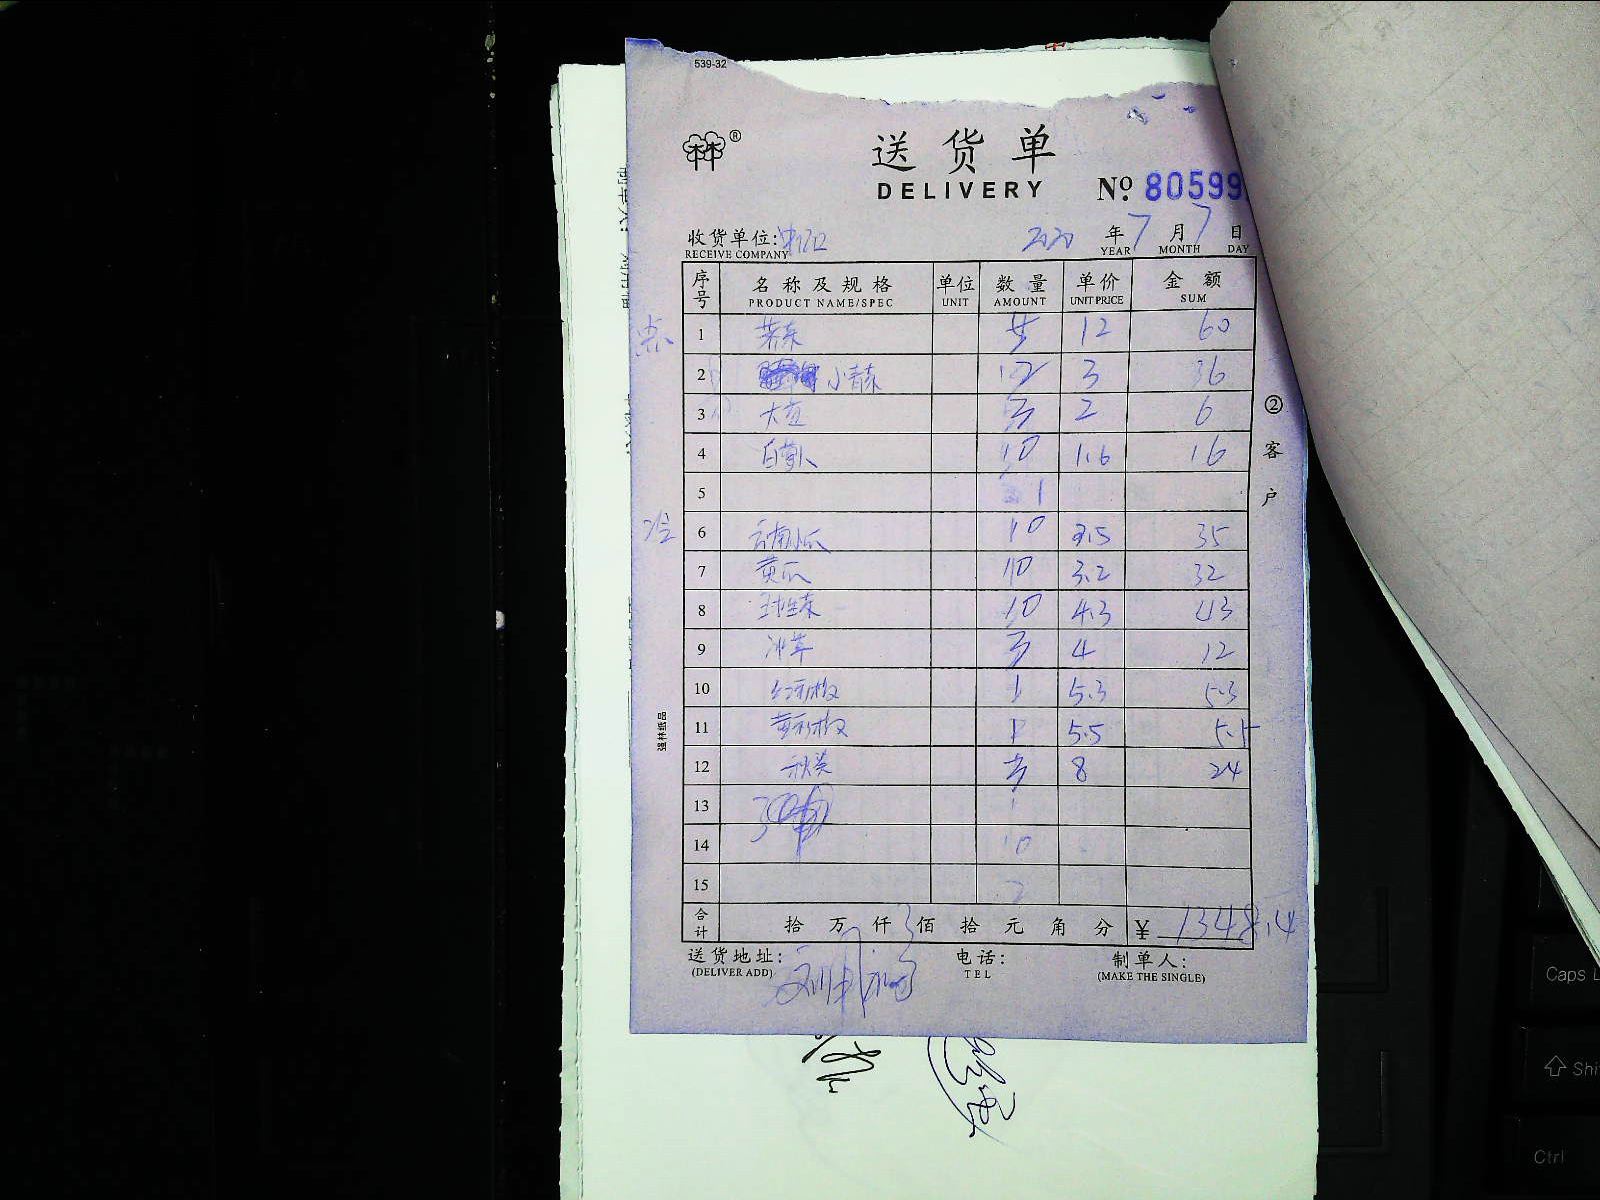 539-32
®
送货单
DELIVERY
№ 80599
收货单位:
RECEIVE COMPANY
2020 年 7 月 7 日
YEAR MONTH DAY
序号 名称及规格 单位 数量 单价 金额
PRODUCT NAME/SPEC UNIT AMOUNT UNIT PRICE SUM
点 1 12 60
2 小青菜 12 3 36
3 大豆 3 2 6
4 白萝卜 10 1.6 16
5 1
冷 6 云南小瓜 10 3.5 35
7 黄瓜 10 3.2 32
8 球生菜 10 4.3 43
9 冰草 3 4 12
10 红彩椒 1 5.3 5.3
11 黄彩椒 1 5.5 5.5
12 秋葵 3 8 24
13
14 10
15
合计 拾 万 仟 佰 拾 元 角 分 ¥ 1348.4
送货地址: 电话: 制单人:
(DELIVER ADD) TEL (MAKE THE SINGLE)
② 客户
强林纸品
Caps L
Shi
Ctrl